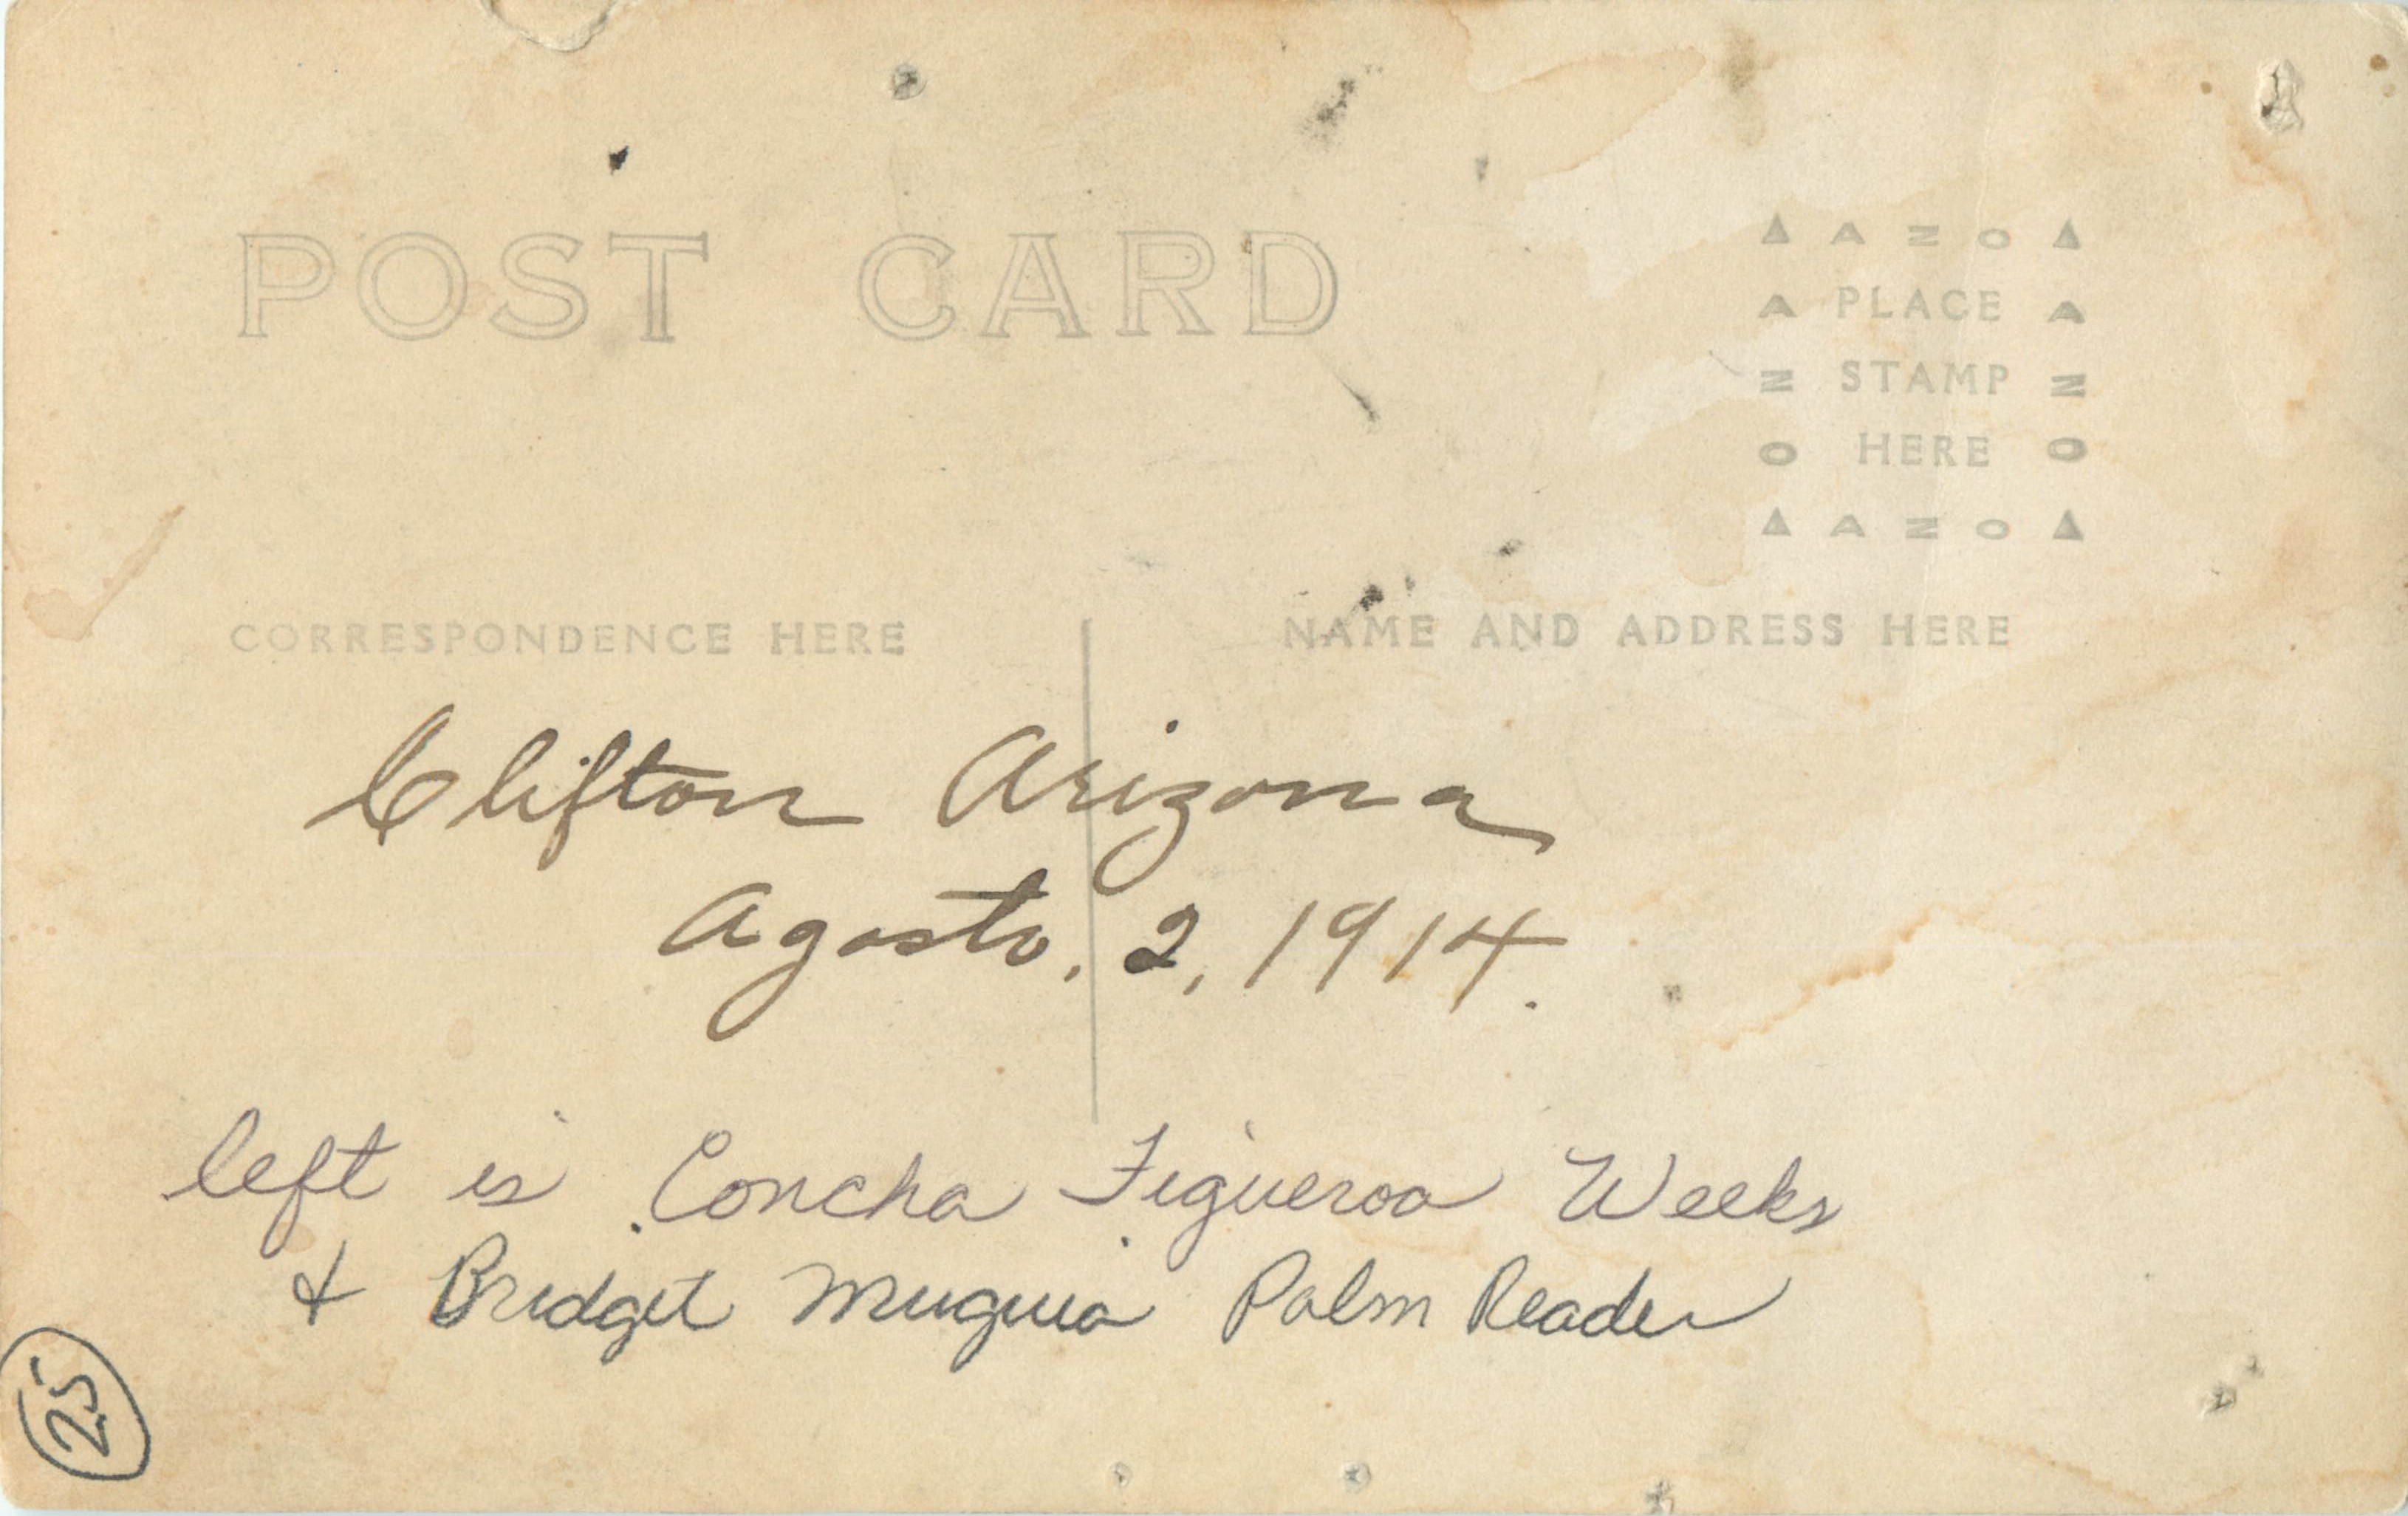 POST CARD
▲ A Z O ▲
A PLACE A
Z STAMP Z
O HERE O
▲ A Z O ▲
CORRESPONDENCE HERE
NAME AND ADDRESS HERE
Clifton Arizona
Agosto, 2, 1914.
left is Concha Figueroa Weeks
& Bridget Muguia Palm Reader
25